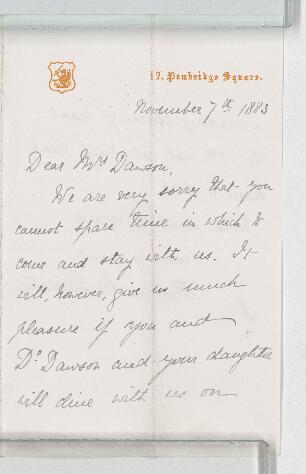 17. Pembridge Square.
November 7th 1883
Dear Mrs Dawson,
We are very sorry that you
cannot spare time in which to
come and stay with us. It
will, however, give us much
pleasure if you and
Dr Dawson and your daughter
will dine with us on